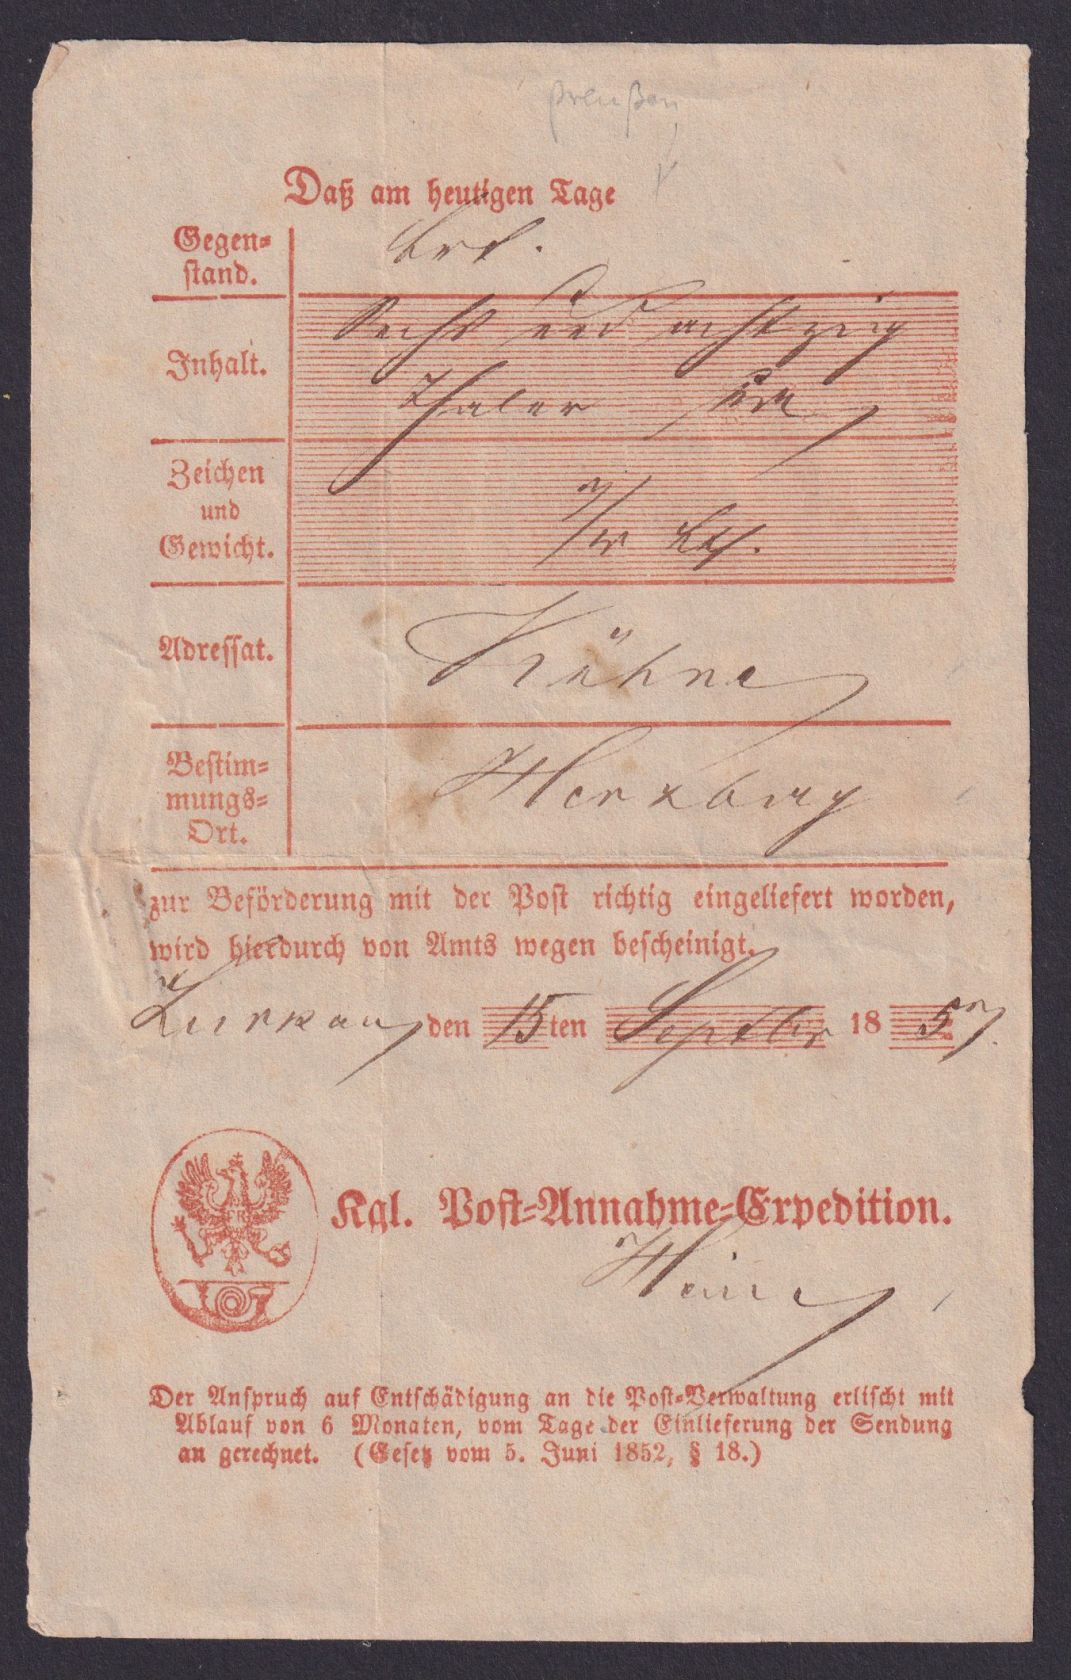 Preußen
Daß am heutigen Tage
Gegen=
stand.
Brf.
Inhalt.
Sechs und achtzig
Thaler
Zeichen
und
Gewicht.
Adressat.
Kühne
Bestim=
mungs=
Ort.
Herzberg
zur Beförderung mit der Post richtig eingeliefert worden,
wird hierdurch von Amts wegen bescheinigt.
Luckau den 15ten Septbr 1857.
Kgl. Post=Annahme=Expedition.
Der Anspruch auf Entschädigung an die Post=Verwaltung erlischt mit
Ablauf von 6 Monaten, vom Tage der Einlieferung der Sendung
an gerechnet. (Gesetz vom 5. Juni 1852, § 18.)